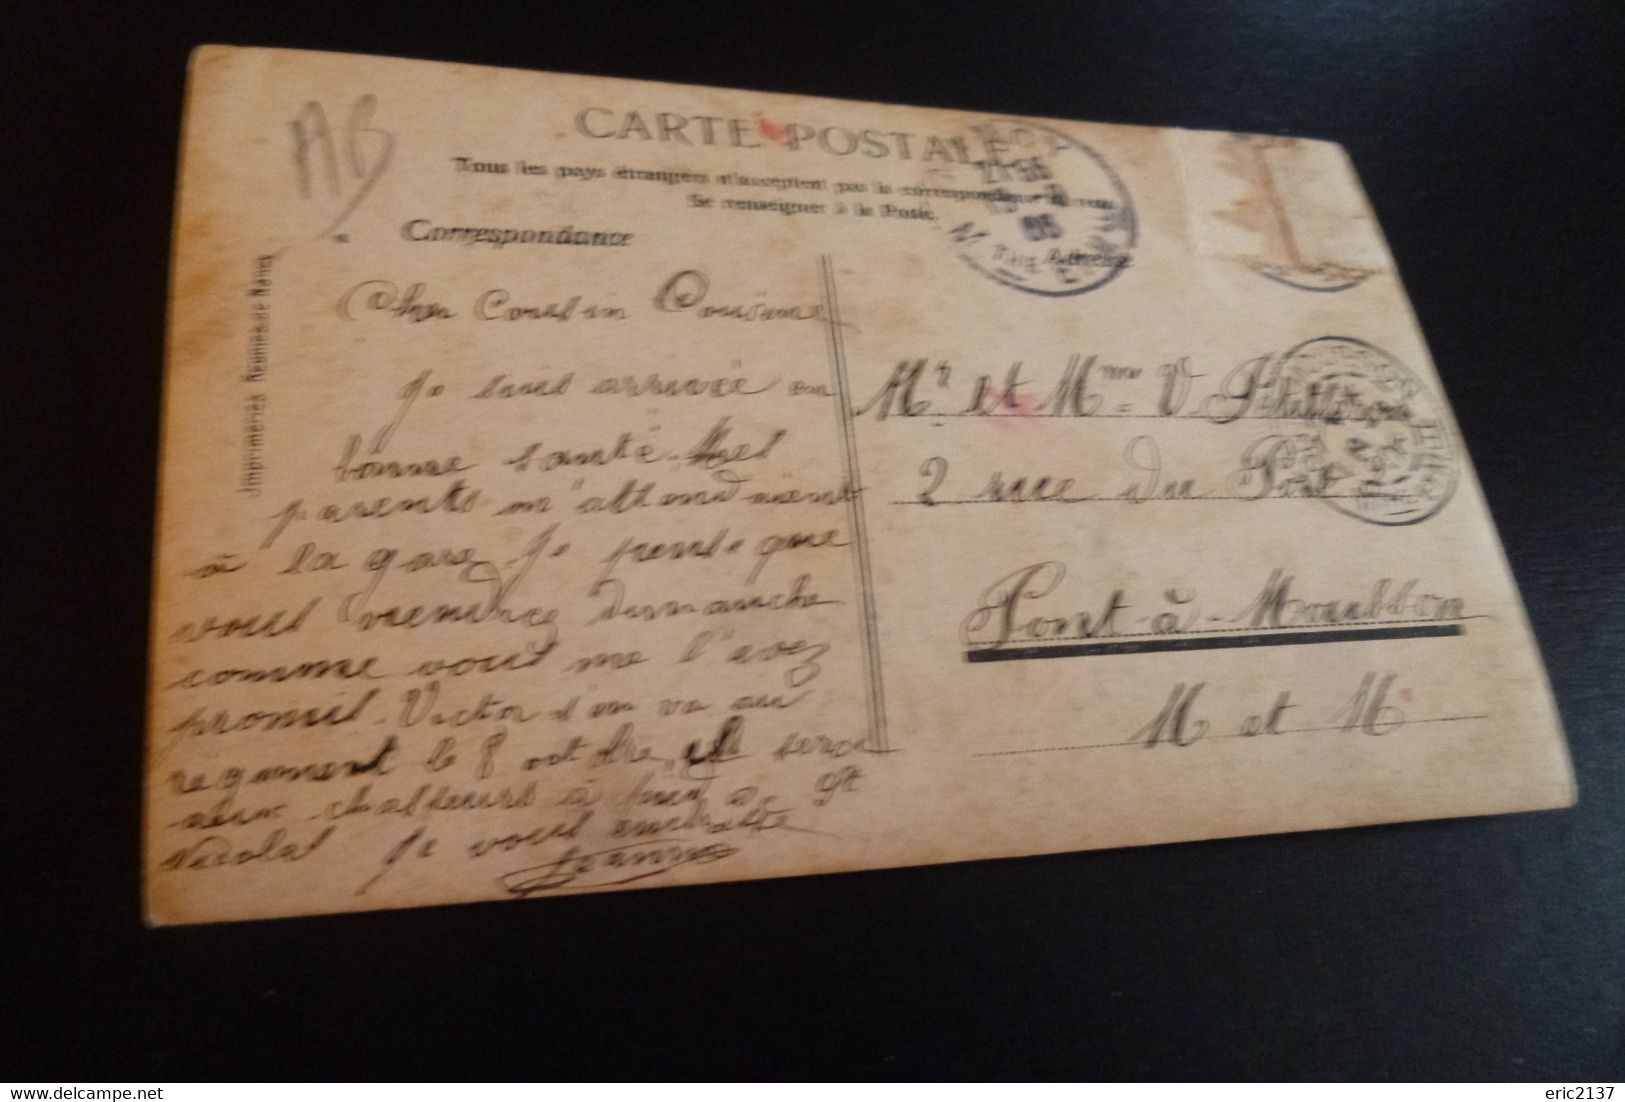 AB
CARTE POSTALE
Tous les pays étrangers n'acceptent pas la correspondance au recto.
Se renseigner à la Poste.
Correspondance
Adresse
Imprimeries Réunies de Nancy
Cher Cousin Cousine
Je suis arrivée en
bonne santé. Mes
parents m'attendaient
à la gare. Je pense que
vous viendrez dimanche
comme vous me l'avez
promis. Victor s'en va au
régiment le 8 octobre, il sera
aux chasseurs à pied à St
Nicolas Je vous embrasse
Jeanne
Mr et Mme V.
2 rue du Pont
Pont-à-Mousson
M et M
www.delcampe.net
eric2137